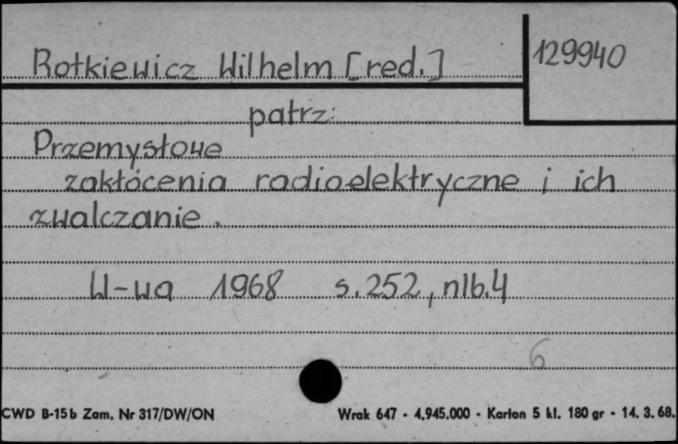 Rotkiewicz Wilhelm [red.]
129940
patrz:
Przemysłowe
zakłócenia radioelektryczne i ich
zwalczanie.
W-wa 1968 s. 252, nlb. 4
6
CWD B-15b Zam. Nr 317/DW/ON
Wrak 647 - 4.945.000 - Karton 5 kl. 180 gr - 14. 3. 68.